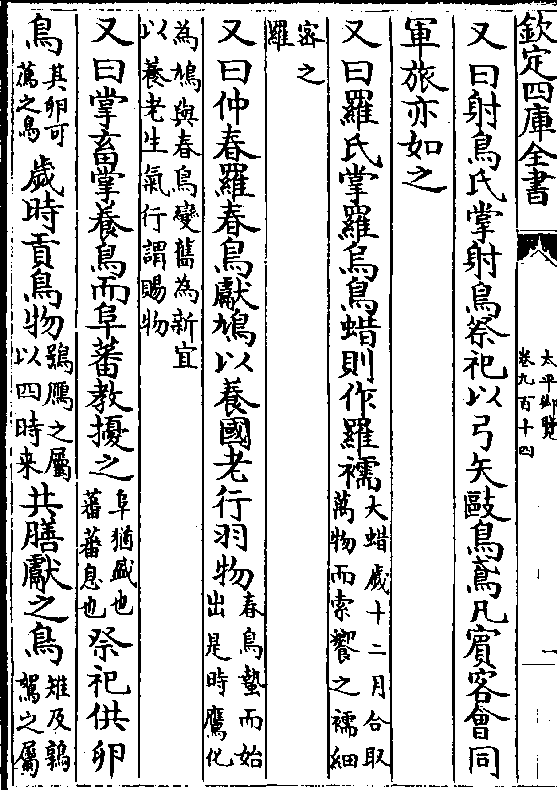 欽定四庫全書
太平御覽
卷九百十四
一
又曰射鳥氏掌射鳥祭祀以弓矢毆鳥鳶凡賓客會同
軍旅亦如之
又曰羅氏掌羅烏鳥蜡則作羅襦大蜡歲十二月合取
萬物而索饗之襦細
密之
羅
又曰仲春羅春鳥獻鳩以養國老行羽物春鳥蟄而始
出是時鷹化
為鳩與春鳥變舊為新宜
以養老生氣行謂賜物
又曰掌畜掌養鳥而阜蕃教擾之阜猶盛也
蕃蕃息也祭祀供卵
鳥其卵可
薦之鳥歲時貢鳥物鴞鴈之屬
以四時来共膳獻之鳥雉及鶉
鴽之屬